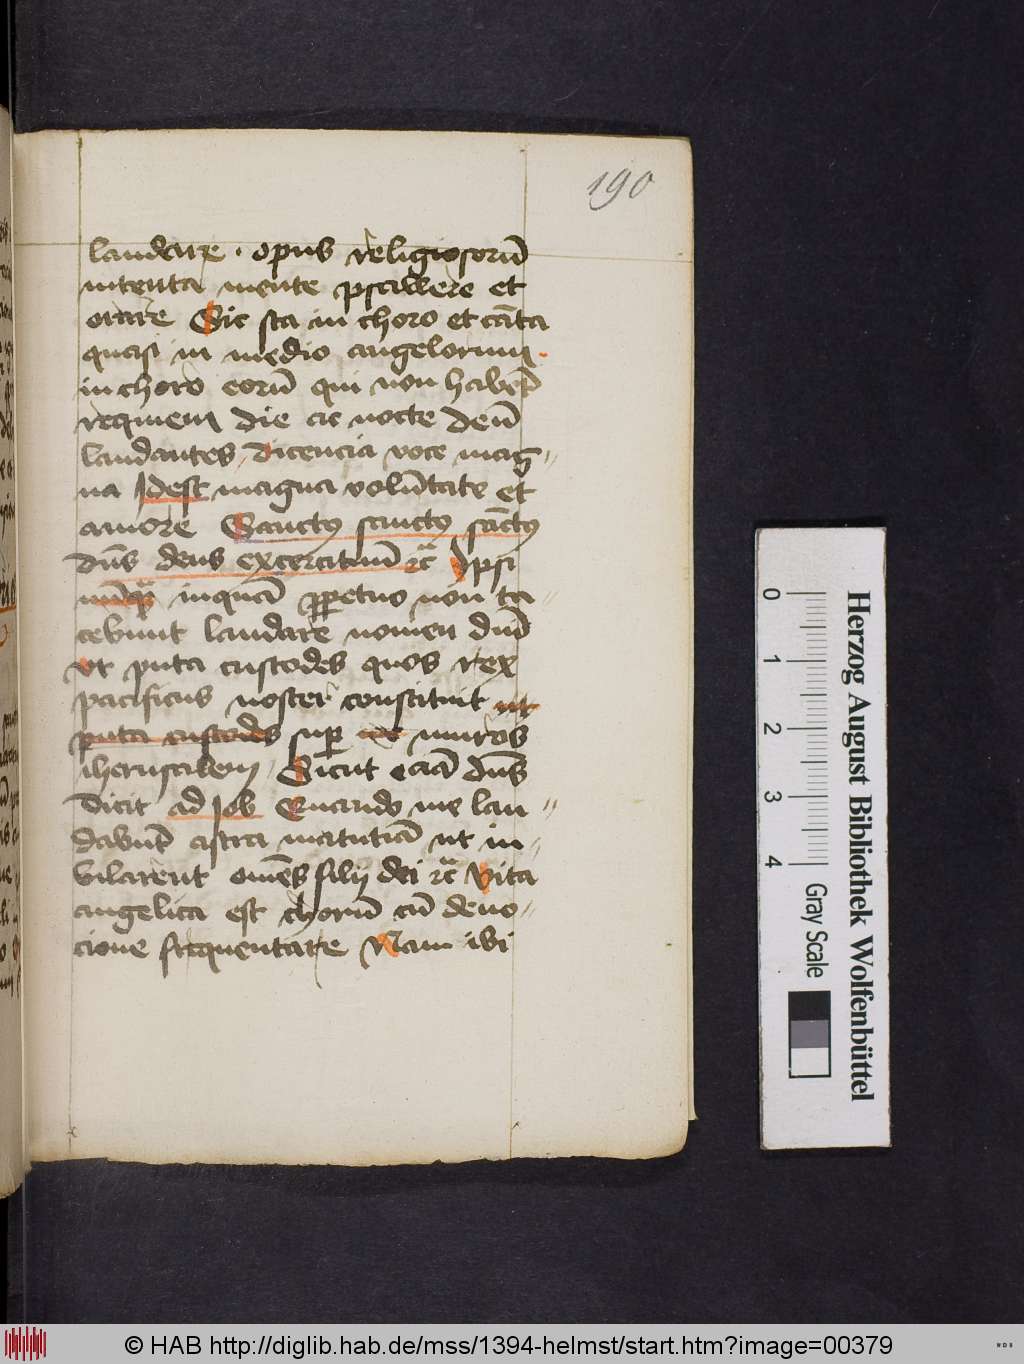 190
laudare · opus religiosorū
intenta mente psallere et
orare Sic sta in choro et cāta
quasi in medio angelorum
in choro eorū qui non habēt
requiem die ac nocte deū
laudantes dicencia voce mag
na Idest magna volūtate et
amore Sanctus sanctus sāctus
dn̄s deus exercituū &c̄ Ipsi
inquā perpetuo non ta
cebunt laudare nomen dnī
vt puta custodes quos rex
pacificus noster constituit ut
puta custodes super muros
iherusalem Sicut eciā dn̄s
dicit ad Iob Quando me lau
dabūt astra matutīa ut iu
bilarent om̄es filij dei &c̄ Vita
angelica est chorū cū deuo
cione frequentare Nam ibi
Herzog August Bibliothek Wolfenbüttel
0 1 2 3 4 Gray Scale
© HAB http://diglib.hab.de/mss/1394-helmst/start.htm?image=00379